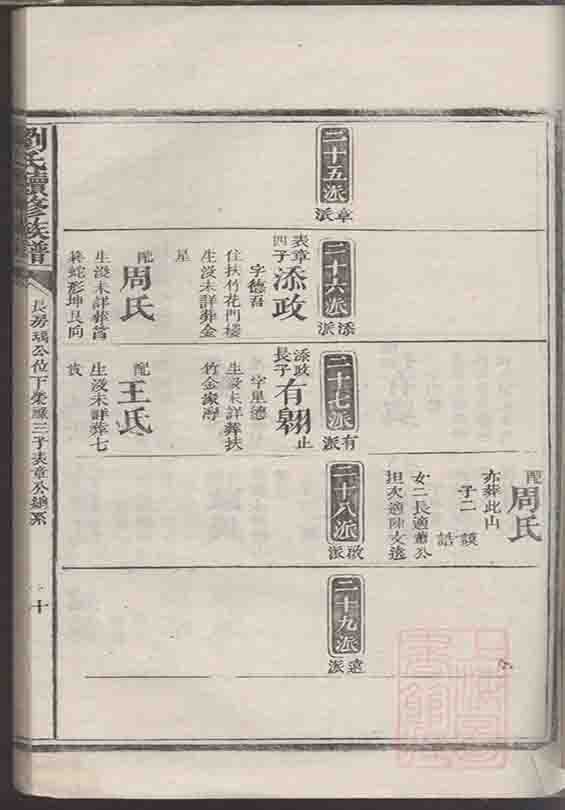 配周氏
亦葬此山
子二 謨
誥
女二長適蕭公
坦次適陳文逵
二十五派
章派
二十六派
添派
二十七派
有派
二十八派
啟派
二十九派
遠派
表章四子添政
字德吾
住扶竹花門樓
生沒未詳葬金
星
配周氏
生沒未詳葬筲
箕蛇形坤艮向
添政長子有翱止
字里德
生沒未詳葬扶
竹金家灣
配王氏
生沒未詳葬七
劉氏續修族譜
長房瑀公位下榮緣三子表章公總系
十
上海圖書館藏